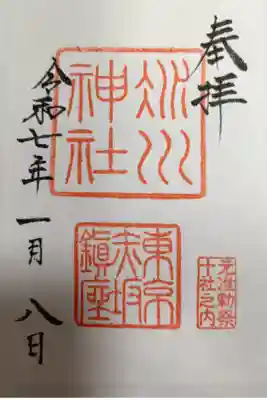 奉拝
氷川
神社
東京
赤坂
鎮座
元准勅祭
十社之内
令和七年 一月 八日